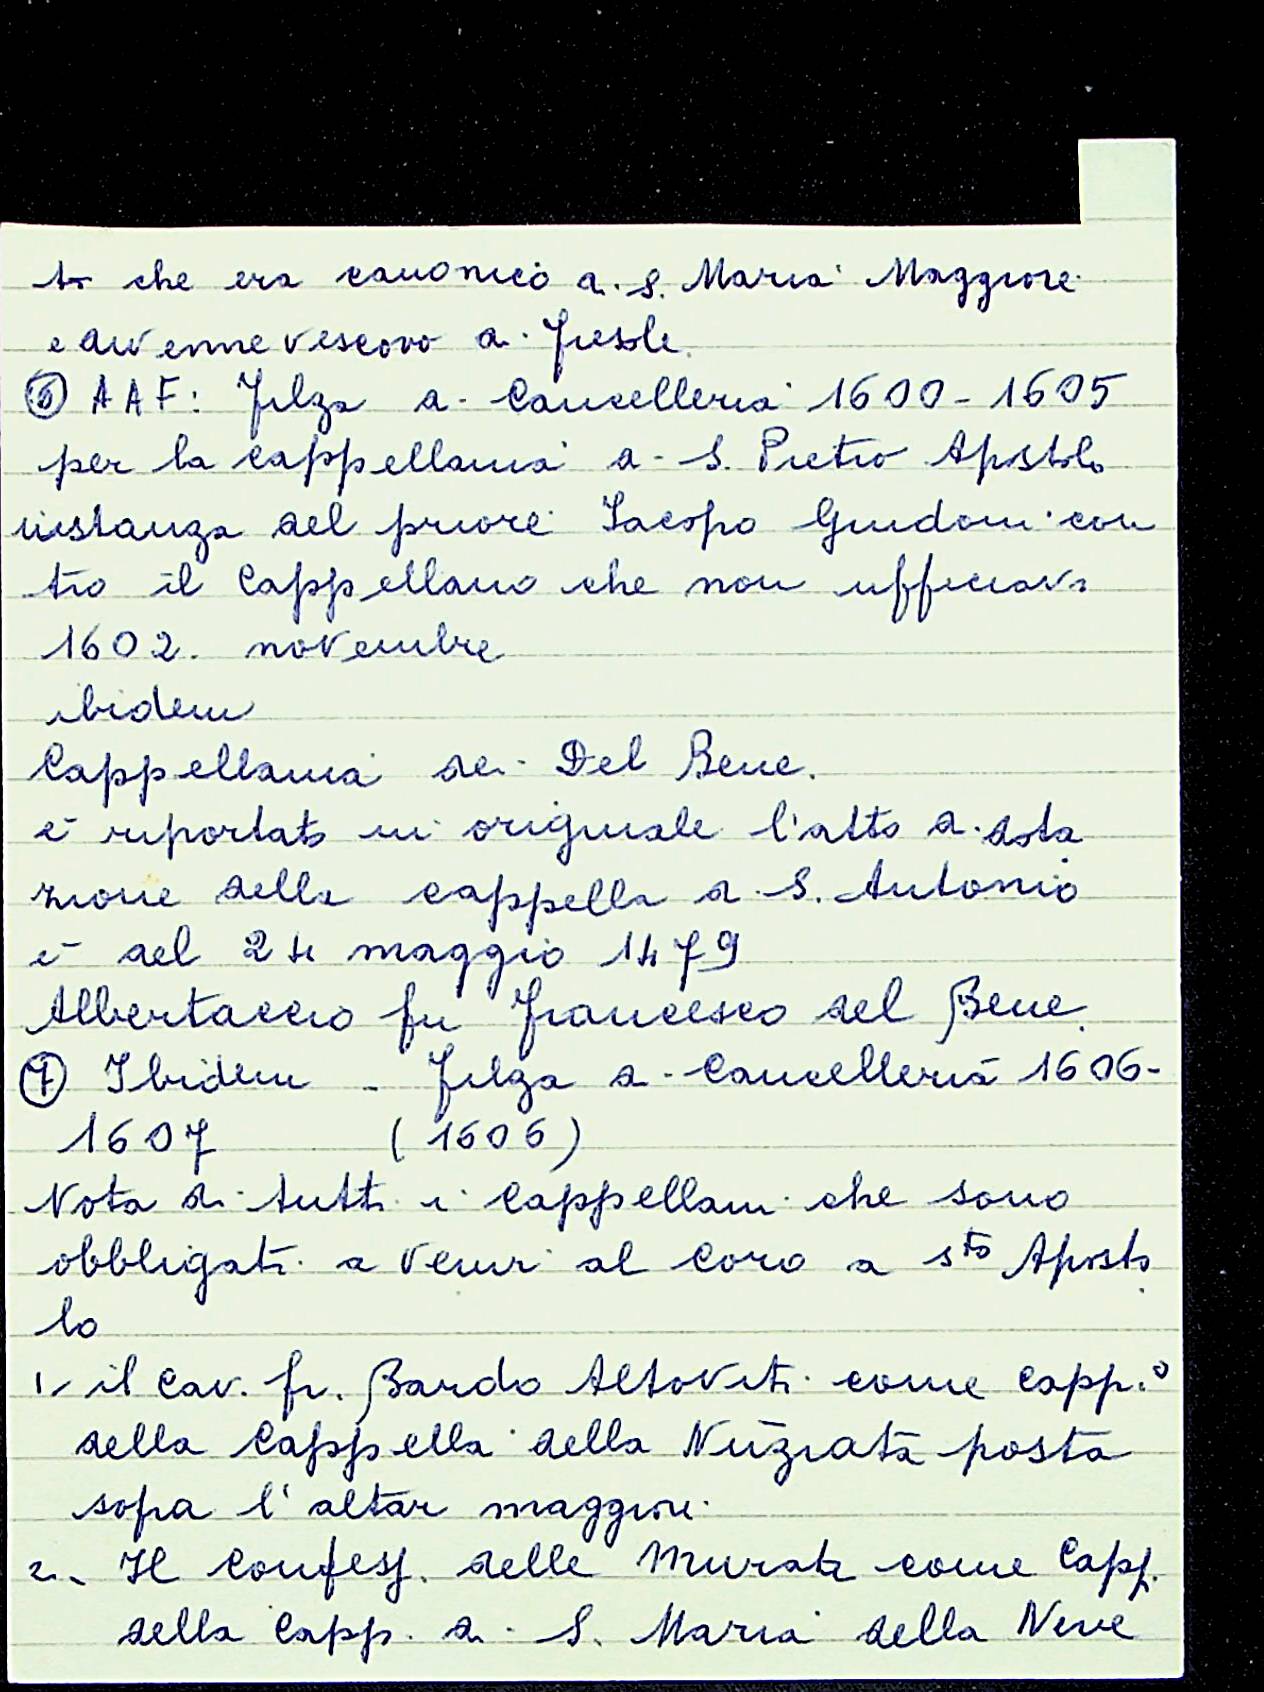 to che era canonico di S. Maria Maggiore
e divenne vescovo di Fiesole.
⑥ AAF: Filza di Cancelleria 1600-1605
per la cappellania di S. Pietro Apostolo
instanza del priore Iacopo Guidoni con
tro il Cappellano che non ufficiava
1602. novembre
ibidem
Cappellania dei Del Bene.
è riportato in originale l'atto di dota
zione della cappella di S. Antonio
è del 24 maggio 1479
Albertaccio fu Francesco del Bene.
⑦ Ibidem - Filza di Cancelleria 1606-
1607 (1606)
Nota di tutti i Cappellani che sono
obbligati a venir al coro a sto Aposto
lo
1, il Cav. fr. Bardo Altoviti come capp.o
della Cappella della Nūziata posta
sopra l'altar maggiore
2. Il Confess. delle Murate come Capp.
della Capp. di S. Maria della Neve